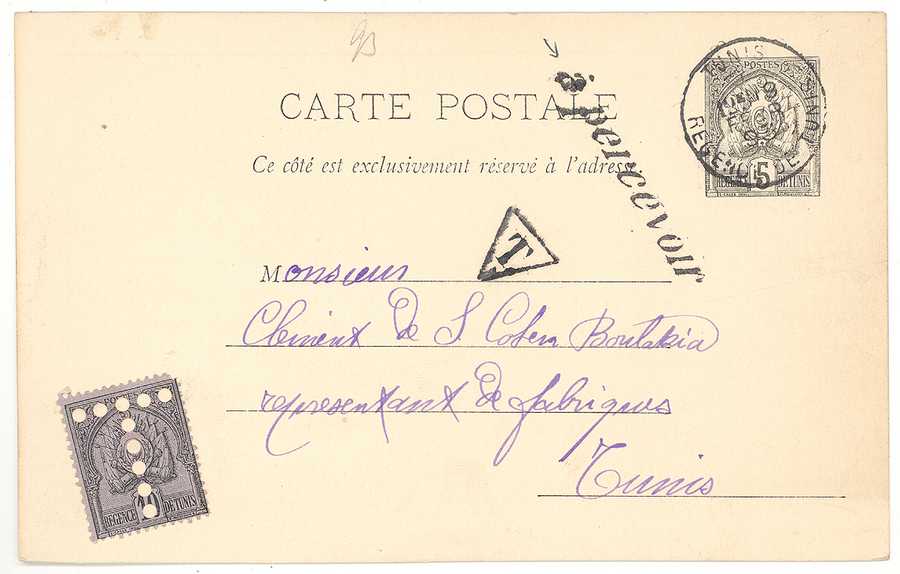 CARTE POSTALE
Ce côté est exclusivement réservé à l'adresse
à percevoir
TUNIS
RÉGENCE DE TUNIS
POSTES
5
RÉGENCE DE TUNIS
T
Monsieur
Clément de S. Cohen Boutakia
représentant de fabriques
Tunis
POSTES
10
RÉGENCE DE TUNIS